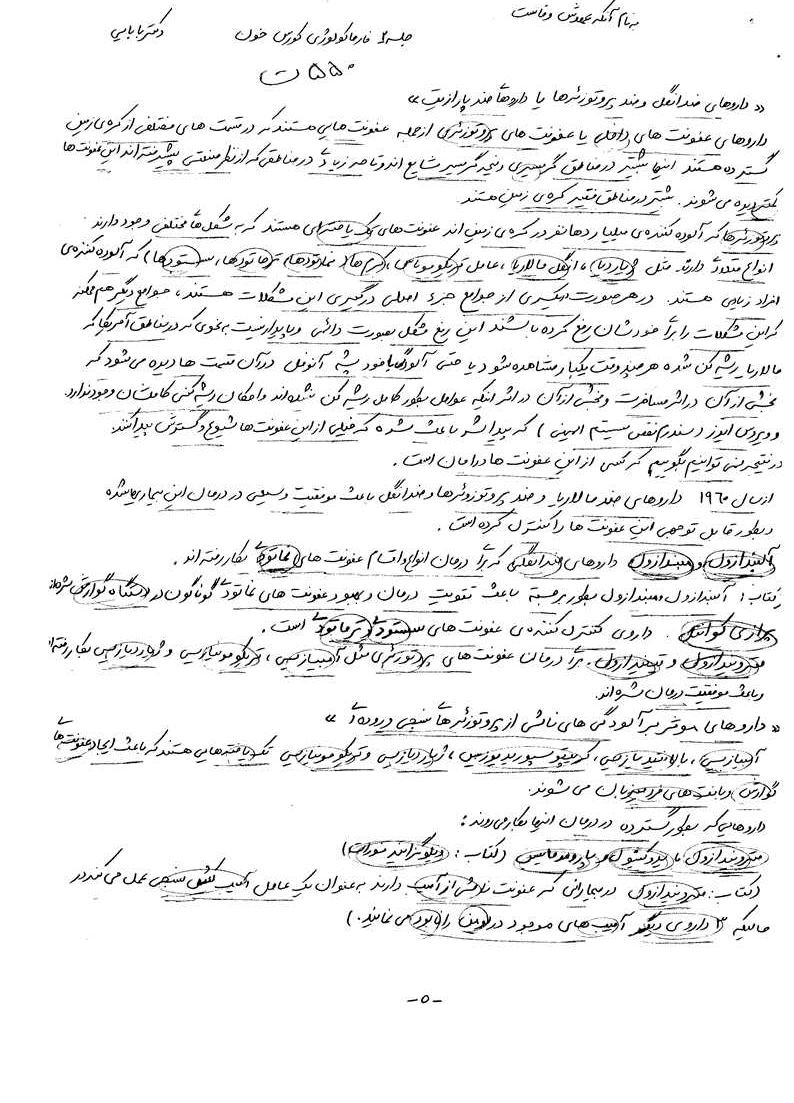 به نام آنکه عهدش وفاست
جلسه ۶ فارماکولوژی کورس خون دکتر بابایی
« داروهای ضد انگل و ضد پروتوزئرها یا داروهای ضد پارازیت »
داروهای عفونت های داخلی یا عفونت های پروتوزئری از جمله عفونت هایی هستند که در قسمت های مختلف از کره ی زمین
گسترده هستند اینها بیشتر در مناطق گرمسیری و نیمه گرمسیر شایع اند و تا حد زیادی در مناطقی که از نظر صنعتی پیشرفته اند این عفونت ها
کمتر دیده می شوند. بیشتر در مناطق فقیر کره ی زمین هستند.
پروتوزئرها که آلوده کننده ی میلیاردها نفر در کره ی زمین اند عفونت های تک یاخته ای هستند که به شکل های مختلفی وجود دارند
انواع متفاوت دارند مثل ژیاردیا، انگل مالاریا، عامل تریکومونایی، کرم ها (نماتودها، ترماتودها، سستودها) که آلوده کننده ی
افراد زیادی هستند. در هر صورت خیلی از جوامع جزء اصلی درگیری این مشکلات هستند، جوامع دیگر هم ممکنه
که این مشکلات را برای خودشان رفع کرده باشند این رفع مشکل بصورت دائمی و پایدار نیست به نحوی که در مناطق آمریکا که
مالاریا ریشه کن شده هر چند وقت یکبار مشاهده شود یا حتی آلودگی با خود پشه آنوفل در آن قسمت ها دیده می شود که
بخشی از آن در اثر مسافرت و بخشی از آن در اثر اینکه عوامل بطور کامل ریشه کن نشده اند و امکان ریشه کنی کاملشان وجود ندارد
و ویروس ایدز (سندرم نقص سیستم ایمنی) که پیدا شد باعث شده که خیلی از این عفونت ها شیوع و گسترش پیدا کنند.
در نتیجه نمی توانیم بگوییم که کسی از این عفونت ها در امان است.
از سال ۱۹۶۰ داروهای ضد مالاریا و ضد پروتوزئرها و ضد انگل باعث موفقیت وسیعی در درمان این بیماریها شده
و بطور قابل توجهی این عفونت ها را کنترل کرده است.
آلبندازول و مبندازول داروهای ضد انگلی که برای درمان انواع و اقسام عفونت های نماتودی بکار رفته اند.
کتاب: آلبندازول و مبندازول بطور برجسته باعث تقویت درمان و بهبود عفونت های نماتودی گوناگون در دستگاه گوارش شده اند
پرازی کوانتل. داروی کنترل کننده ی عفونت های سستودی و ترماتودی است.
مترونیدازول و تینیدازول. برای درمان عفونت های پروتوزئری مثل آمیبیازیس، تریکومونیازیس و ژیاردیازیس بکار رفته اند
و باعث موفقیت درمان شده اند.
« داروهای موثر بر آلودگی های ناشی از پروتوزئرهای نسجی و روده ای »
آمیبیازیس، بالانتیدیازیس، کریپتوسپوریدیوزیس، ژیاردیازیس و تریکومونیازیس تک یاخته هایی هستند که باعث ایجاد عفونت های
گوارشی و بافت های فرد میزبان می شوند.
داروهایی که بطور گسترده در درمان اینها بکار می روند:
مترونیدازول، یدوکینول و پارومومایسین (کتاب: دیلوگزانید فوروات)
(کتاب: مترونیدازول در بیمارانی که عفونت ناشی از آمیب دارند به عنوان یک عامل آمیب کش نسجی عمل می کند در
حالیکه ۳ داروی دیگر آمیب های موجود در لومن را نابود می نمایند.)
-۵-